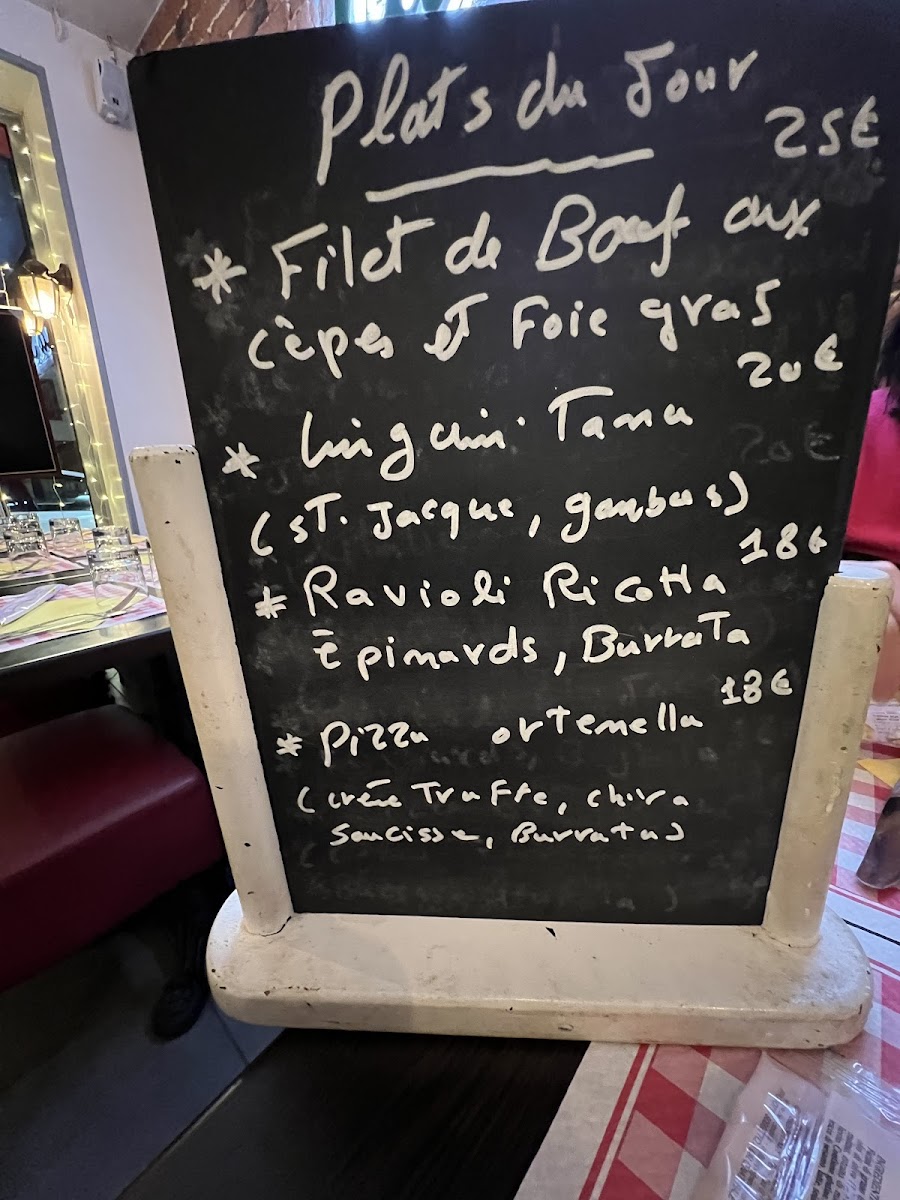 Plats du Jour
25€
* Filet de Boeuf aux
cêpes et Foie gras
20€
* linguini Tana
20€
(ST. Jacque, gambas)
18€
* Ravioli Ricotta
Epinards, Burrata
18€
* Pizza ortemella
(crème Truffe, chiva
Saucisse, Burrata)